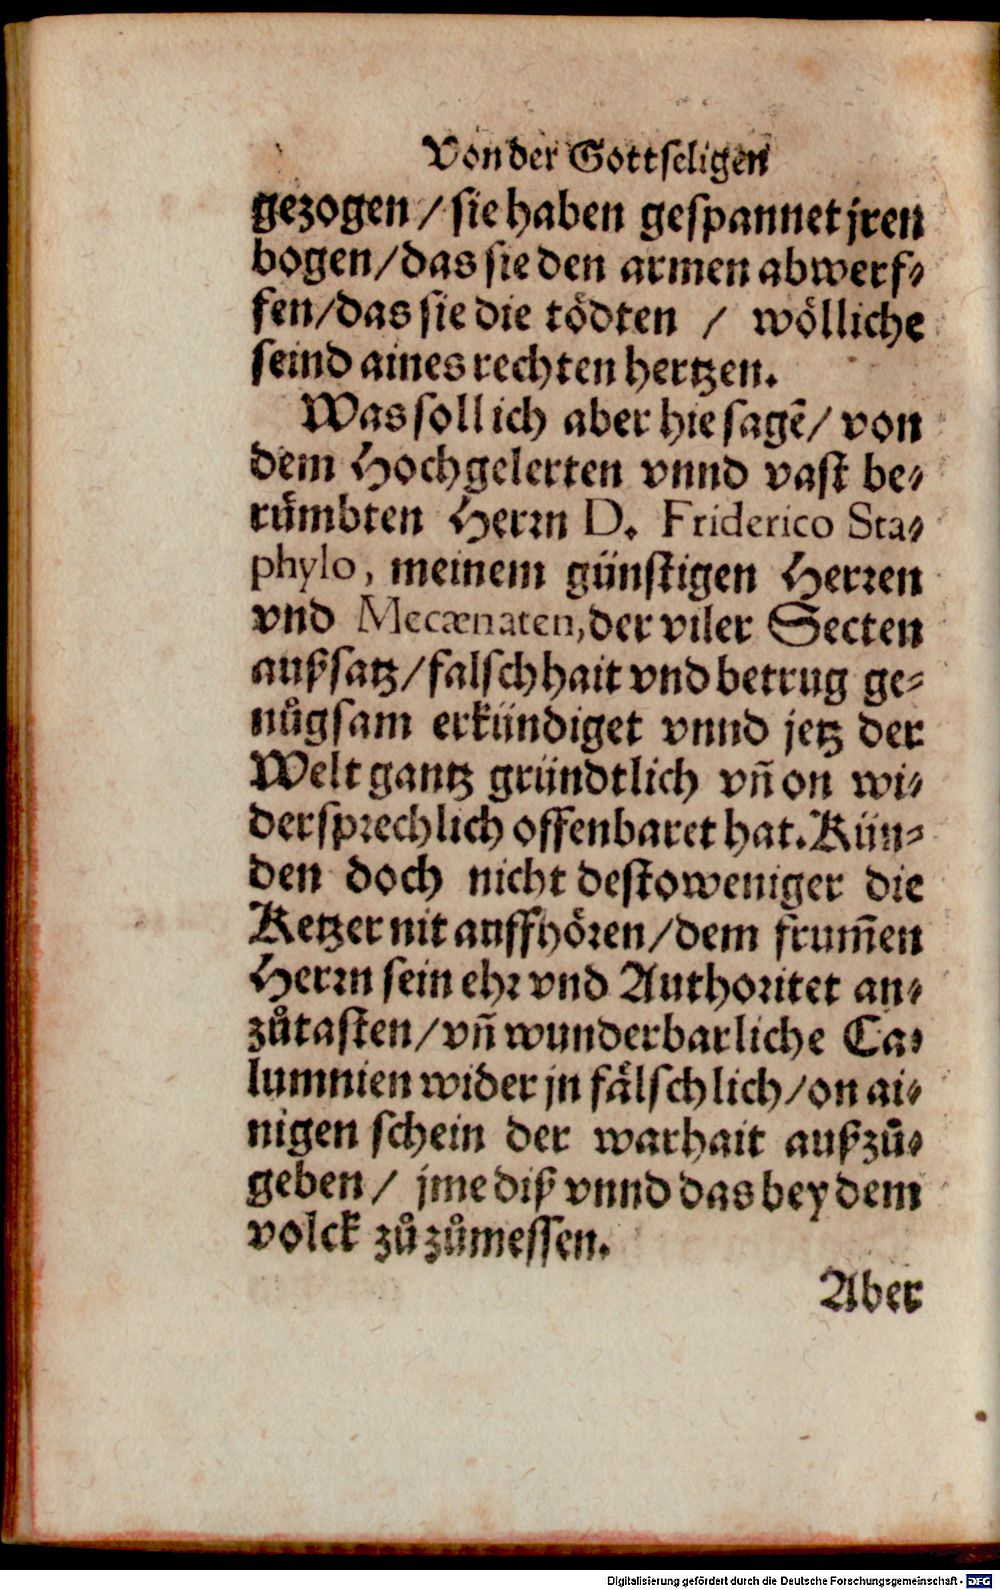 Von der Gottseligen
gezogen / sie haben gespannet jren
bogen/das sie den armen abwerf⸗
fen/das sie die tödten / wölliche
seind aines rechten hertzen.
Was soll ich aber hie sagē/ von
dem Hochgelerten vnnd vast be⸗
růmbten Herrn D. Friderico Sta⸗
phylo, meinem günstigen Herren
vnd Mecænaten, der viler Secten
außsatz/falschhait vnd betrug ge⸗
nůgsam erkündiget vnnd jetz der
Welt gantz gründtlich vñ on wi⸗
dersprechlich offenbaret hat. Kün⸗
den doch nicht destoweniger die
Ketzer nit auffhören/dem frum̃en
Herrn sein ehr vnd Authoritet an⸗
zůtasten/vñ wunderbarliche Ca⸗
lumnien wider jn fälschlich/on ai⸗
nigen schein der warhait außzů⸗
geben/ jme diß vnnd das bey dem
volck zů zůmessen.
Aber
Digitalisierung gefördert durch die Deutsche Forschungsgemeinschaft - DFG